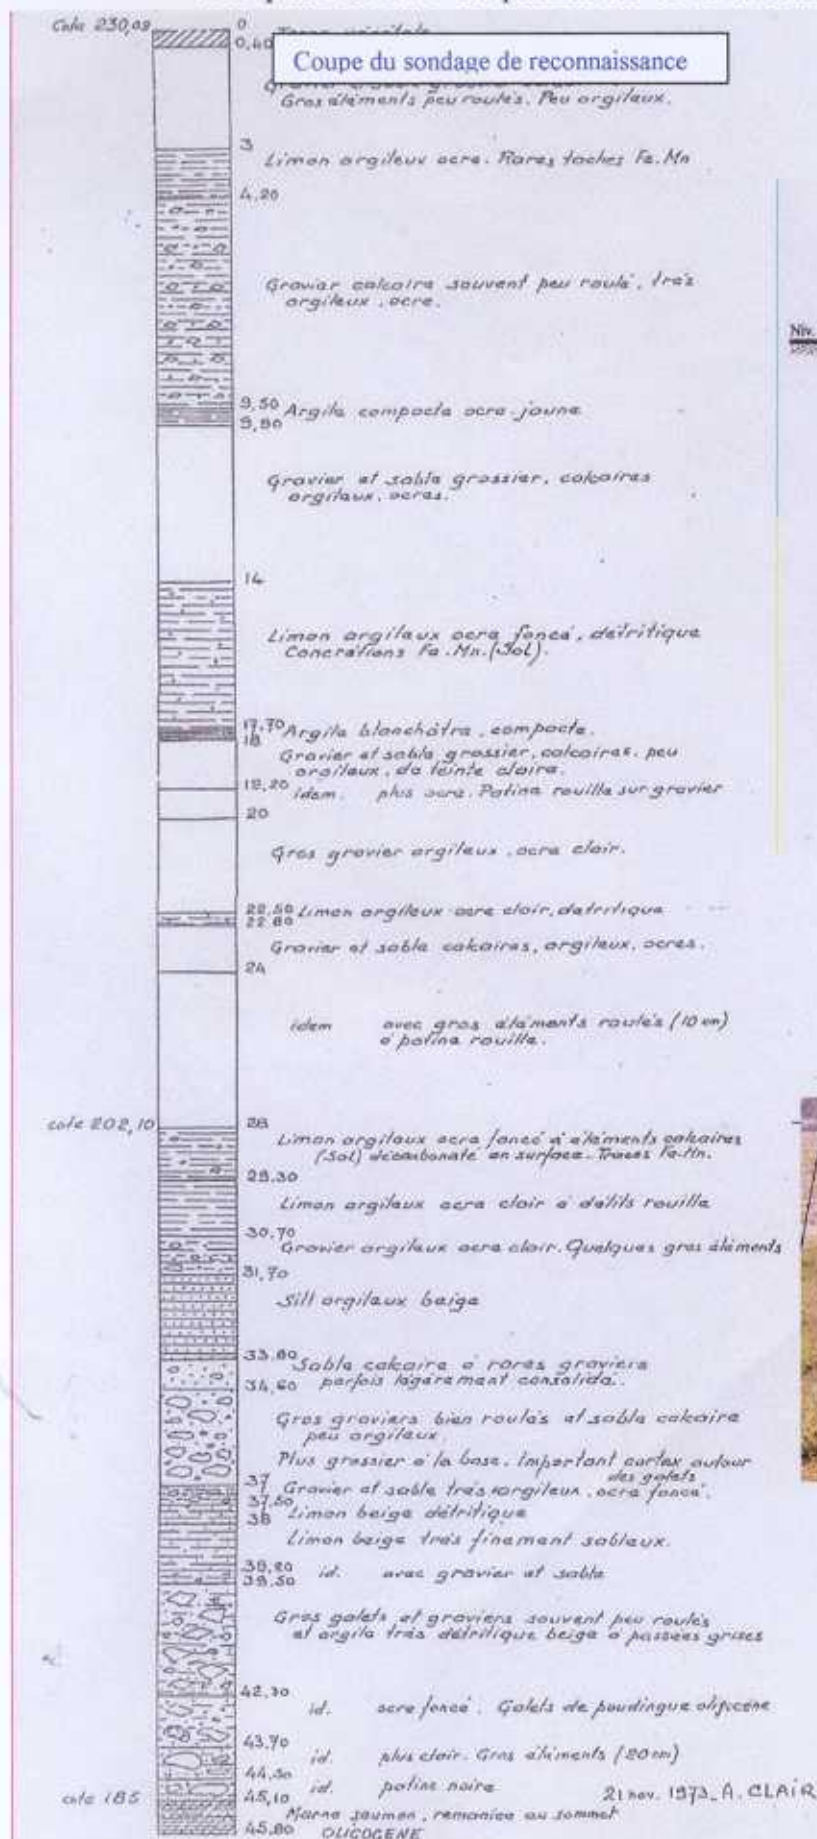 Cote 230,09
0
0,40
Coupe du sondage de reconnaissance
Gros éléments peu roulés. Peu argileux.
3
Limon argileux ocre. Rares taches Fe.Mn
4,20
Gravier calcaire souvent peu roulé, très
argileux, ocre.
Niv.
9,50 Argile compacte ocre-jaune
9,90
Gravier et sable grossier, calcaires
argileux, ocres.
14
Limon argileux ocre foncé, détritique
Concrétions Fe.Mn.(Sol).
17,70 Argile blanchâtre, compacte.
18
Gravier et sable grossier, calcaires, peu
argileux, de teinte claire.
19,20 idem. plus ocre. Patine rouille sur gravier
20
Gros gravier argileux, ocre clair.
22,50 Limon argileux ocre clair, détritique
22.80
Gravier et sable calcaires, argileux, ocres.
24
idem avec gros éléments roulés (10 cm)
à patine rouille.
cote 202,10
28
Limon argileux ocre foncé à éléments calcaires
(Sol) décarbonaté en surface. Traces Fe.Mn.
29.30
Limon argileux ocre clair à débits rouille
30.70
Gravier argileux ocre clair. Quelques gros éléments
31,70
Silt argileux beige
33.80 Sable calcaire à rares graviers
34,60 parfois légèrement consolidé.
Gros graviers bien roulés et sable calcaire
peu argileux.
Plus grossier à la base. Important cortex autour
des galets
37 Gravier et sable très argileux, ocre foncé.
37.50
38 Limon beige détritique
Limon beige très finement sableux.
39,20 id. avec gravier et sable
39.50
Gros galets et graviers souvent peu roulés
et argile très détritique beige à passées grises
42,30
id. ocre foncé. Galets de poudingue oligocène
43.70
id. plus clair. Gros éléments (20 cm)
44.50
id. patine noire
21 nov. 1973. A. CLAIR
cote 185
45,10
Marne saumon, remaniée au sommet
45.80 OLIGOCENE